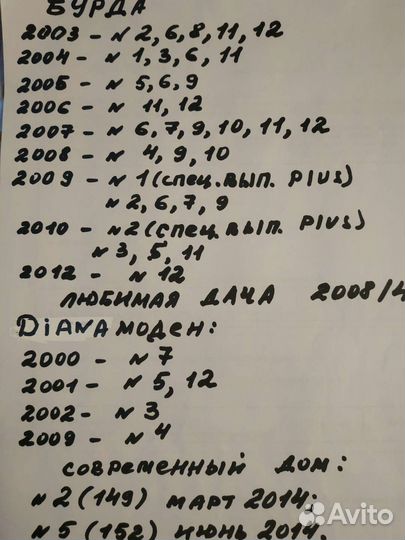 БУРДА
2003 - N 2, 6, 8, 11, 12
2004 - N 1, 3, 6, 11
2005 - N 5, 6, 9
2006 - N 11, 12
2007 - N 6, 7, 9, 10, 11, 12
2008 - N 4, 9, 10
2009 - N 1 (спец. вып. PIUS)
N 2, 6, 7, 9
2010 - N2 (спец. вып. PIUS)
N 3, 5, 11
2012 - N 12
ЛЮБИМАЯ ДАЧА 2008/4
DiANA МОДЕН:
2000 - N 7
2001 - N 5, 12
2002 - N 3
2009 - N 4
современный дом:
N 2 (149) март 2014;
N 5 (152) июнь 2014.
Avito